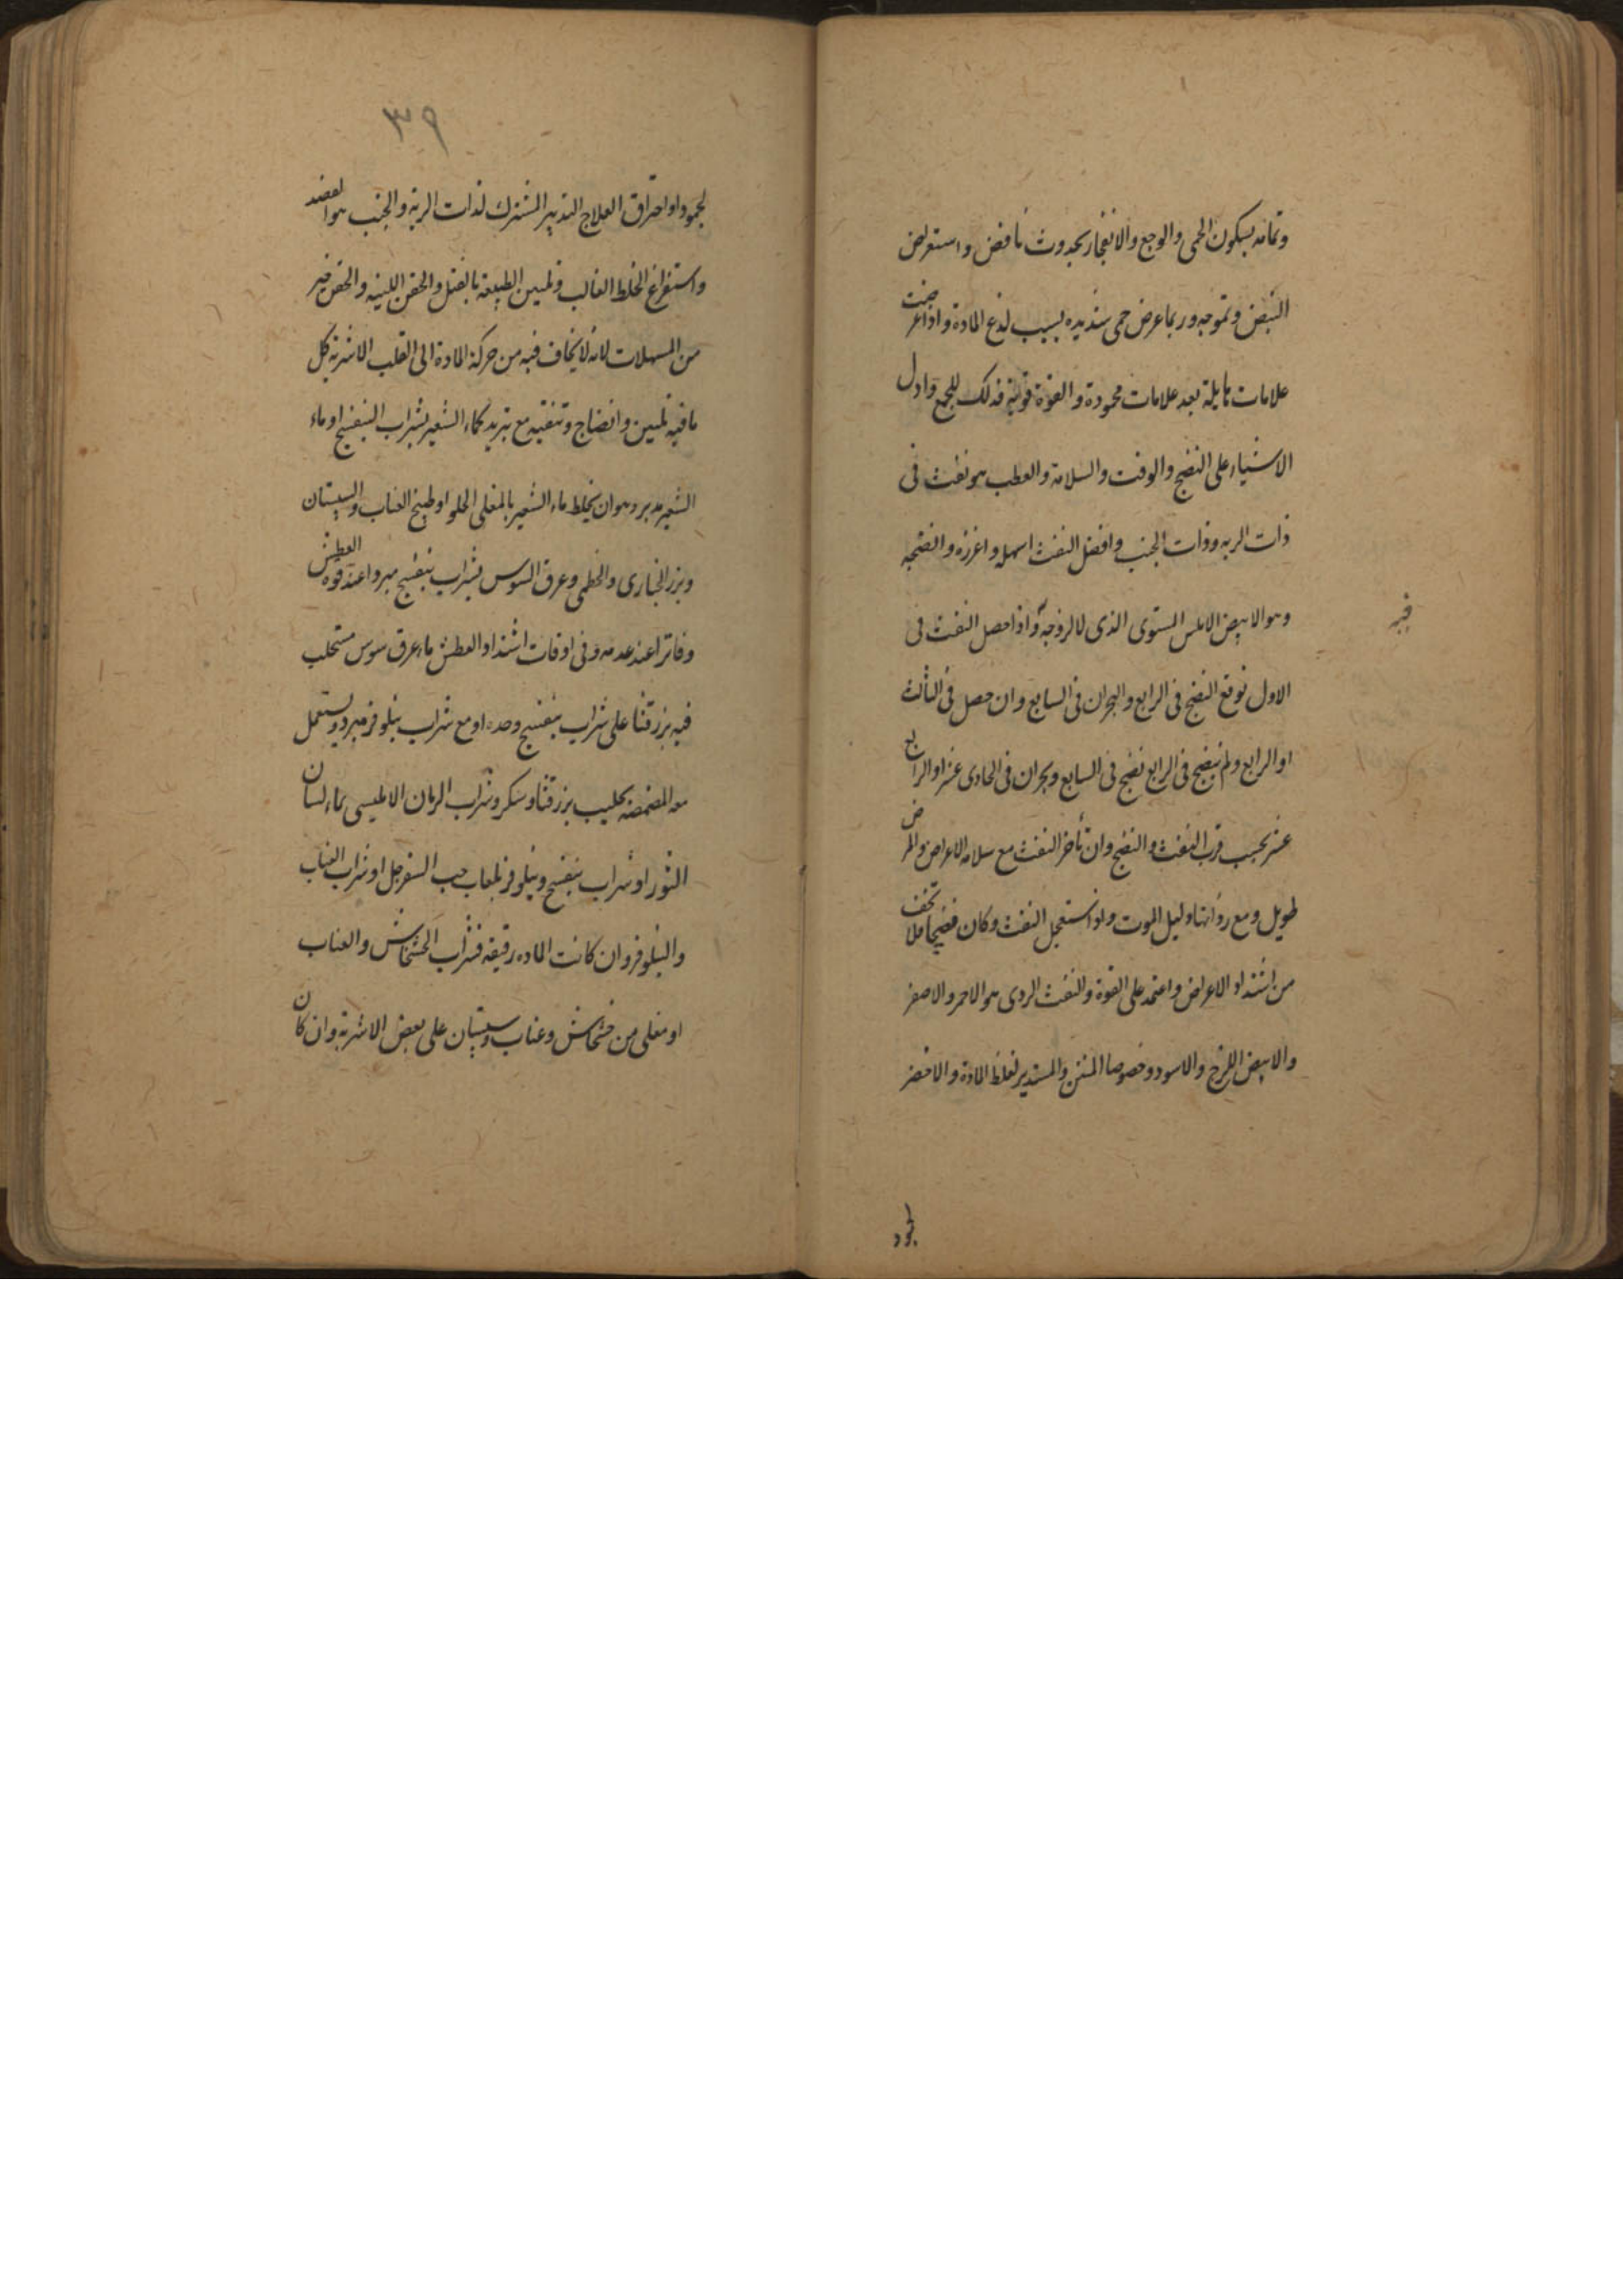 وتمامه بسكون الحمى والوجع والانفجار بحدوث نافض واستعراض
النبض وتموجه وربما عرض حمى شديده بسبب لذع المادة واذا عرضت
علامات هايلة بعد علامات محمودة والقوة قوية فذلك للجمع وادل
الاشياء على النضج والوقت والسلامة والعطب هو نفث فى
ذات الريه وذات الجنب وافضل النفث اسهله واغزره وانضجه
وهو الابيض الاملس المستوى الذى لا لزوجة واذا حصل النفث فى
فيه
الاول توقع النضج فى الرابع والبحران فى السابع وان حصل فى الثالث
او الرابع ولم ينضج فى الرابع نضج فى السابع وبحران فى الحادى عشر او الرابع
عشر بحسب قرب النفث والنضج وان تأخر النفث مع سلامه الاعراض والمرض
طويل ومع رداءتها دليل الموت ولو استعجل النفث وكان نضيجا فلا تخف
من اشتداد الاعراض واعتمد على القوة والنفث الردى هو الاحمر والاصفر
والابيض اللزج والاسود وخصوصا المنتن والمستدير لغلظ المادة والاخضر
لجمود
٣٩
لجمود او احتراق العلاج التدبير المشترك لذات الرية والجنب هو الفصد
واستفراغ الخلط الغالب وتليين الطبيعة بالفتل والحقن اللينه والحقن خير
من المسهلات لانه لا يخاف فيه من حركة المادة الى القلب الاشربة كل
ما فيه تليين وانضاج وتنقيه مع تبريد كماء الشعير بشراب البنفسج او ماء
الشعير مدبر وهو ان يخلط ماء الشعير بالمغلى الحلو او طبيخ العناب والسپستان
وبزر الخبازى والخطمى وعرق السوس بشراب بنفسج مبردا عند قوة العطش
وفاترا عند عدمه وفى اوقات اشتداد العطش ماء عرق سوس مستحلب
فيه بزرقنا على شراب بنفسج وحده او مع شراب نيلوفر مبرد ويستعمل
معه المضمضه بحليب بزرقنا وسكر وشراب الرمان الامليسى بماء لسان
الثور او شراب بنفسج ونيلوفر بلعاب حب السفرجل او شراب العناب
والنيلوفر وان كانت الماده رقيقه فشراب الخشخاش والعناب
او مغلى من خشخاش وعناب وسپستان على بعض الاشربة وان كان